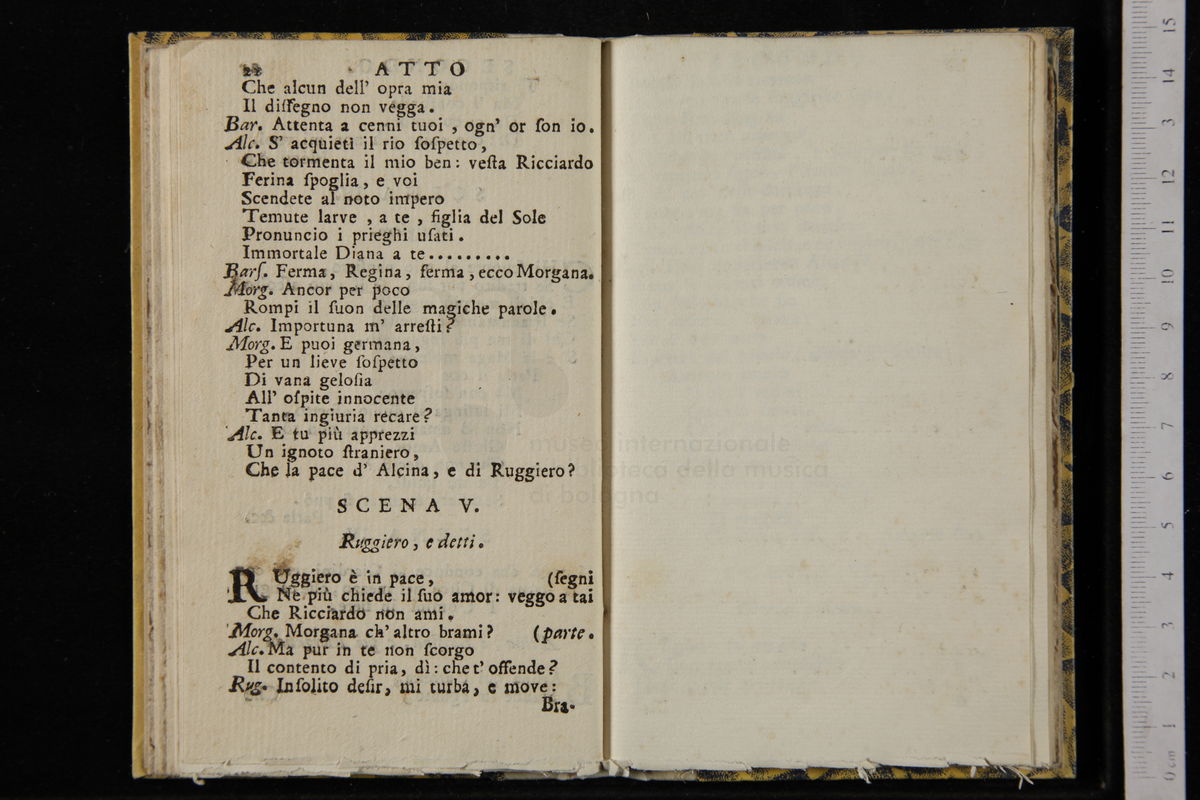 22 ATTO
Che alcun dell' opra mia
Il diſſegno non vegga.
Bar. Attenta a cenni tuoi , ogn' or ſon io.
Alc. S' acquieti il rio ſoſpetto,
Che tormenta il mio ben: veſta Ricciardo
Ferina ſpoglia, e voi
Scendete al noto impero
Temute larve , a te , figlia del Sole
Pronuncio i prieghi uſati.
Immortale Diana a te.........
Barſ. Ferma, Regina, ferma, ecco Morgana.
Morg. Ancor per poco
Rompi il ſuon delle magiche parole.
Alc. Importuna m' arreſti?
Morg. E puoi germana,
Per un lieve ſoſpetto
Di vana geloſia
All' oſpite innocente
Tanta ingiuria recare?
Alc. E tu più apprezzi
Un ignoto ſtraniero,
Che la pace d' Alcina, e di Ruggiero?
SCENA V.
Ruggiero, e detti.
RUggiero è in pace, (ſegni
Nè più chiede il ſuo amor: veggo a tai
Che Ricciardo non ami.
Morg. Morgana ch' altro brami? (parte.
Alc. Ma pur in te non ſcorgo
Il contento di pria, dì: che t' offende?
Rug. Inſolito deſir, mi turba, e move:
Bra-
museo internazionale
e biblioteca della musica
di bologna
0 cm 1 2 3 4 5 6 7 8 9 10 11 12 13 14 15